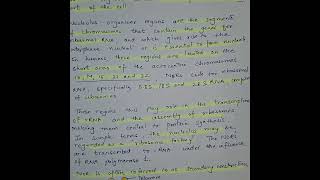 of the cell
Nucleolus organiser regions are the segments
of chromosomes that contain the genes for
ribosomal RNA and which gives rise to the
interphase nucleoli or is essential to form nucleoli
In humans these regions are located on the
short arms of the acrocentric chromosomes
13, 14, 15, 21 and 22. NORs code for ribosomal
RNA, specifically 5.8S, 18S and 28S rRNA
of ribosomes
These regions this play role in the transcription
of rRNA and the assembly of ribosomes
making them central to protein synthesis
In simple terms, the nucleolus may be
regarded as a ribosome factory. The NORs
are transcribed to RNA under the influence
of RNA polymerase I.
NOR is often referred to as secondary constriction